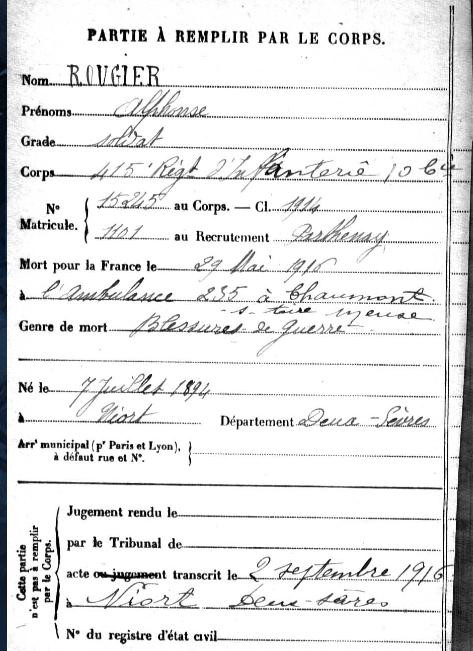 PARTIE À REMPLIR PAR LE CORPS.
Nom ROUGIER
Prénoms Alphonse
Grade soldat
Corps 415e Régt d'Infanterie 10 Cie
N° Matricule. { 15245 au Corps. — Cl. 1914
1101 au Recrutement Parthenay
Mort pour la France le 29 Mai 1916
à l'Ambulance 235 à Chaumont
s- Aire Meuse
Genre de mort Blessures de Guerre
Né le 7 Juillet 1894
à Niort Département Deux-Sèvres
Arrt municipal (pr Paris et Lyon), à défaut rue et N°.
Cette partie n'est pas à remplir par le Corps.
Jugement rendu le
par le Tribunal de
acte ou jugement transcrit le 2 septembre 1916
à Niort Deux-Sèvres
N° du registre d'état civil